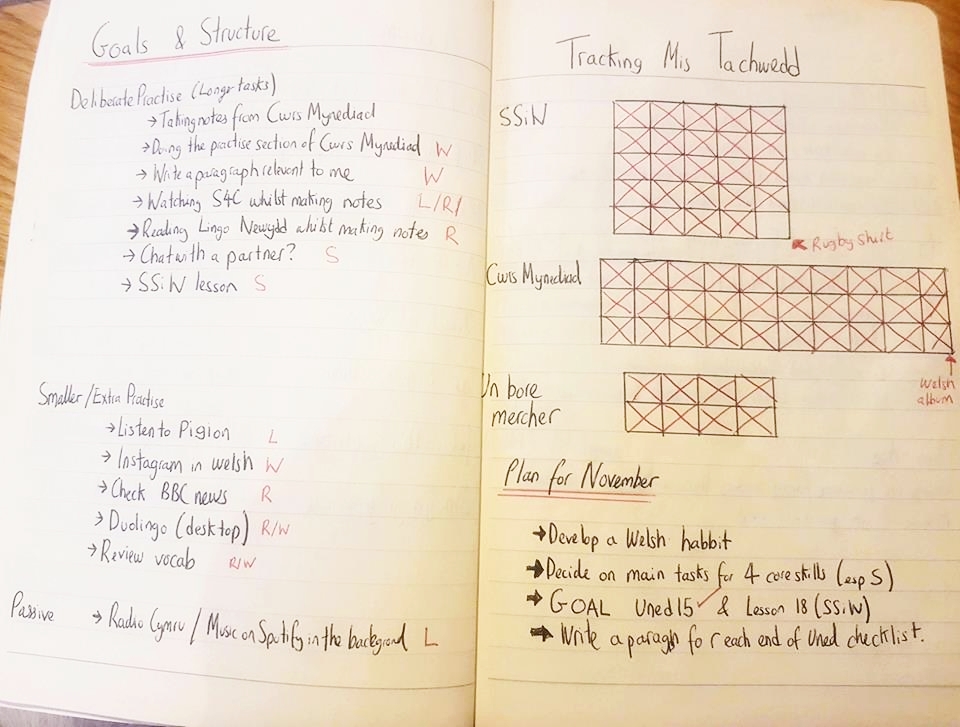 Goals & Structure
Deliberate Practise (Longer tasks)
→ Taking notes from Cwrs Mynediad
→ Doing the practise section of Cwrs Mynediad W
→ Write a paragraph relevant to me W
→ Watching S4C whilst making notes L/R/
→ Reading Lingo Newydd whilst making notes R
→ Chat with a partner? S
→ SSiW lesson S
Smaller/Extra Practise
→ Listen to Pigion L
→ Instagram in welsh W
→ Check BBC news R
→ Duolingo (desktop) R/W
→ Review vocab R/W
Passive → Radio Cymru / Music on Spotify in the background L
Tracking Mis Tachwedd
SSiW
Rugby Shirt
Cwrs Mynediad
Welsh
album
Un bore
mercher
Plan for November
→ Develop a Welsh habbit
→ Decide on main tasks for 4 core skills (esp S)
→ GOAL Uned 15 ✓ & Lesson 18 (SSiW)
→ Write a paragh for each end of Uned checklist.